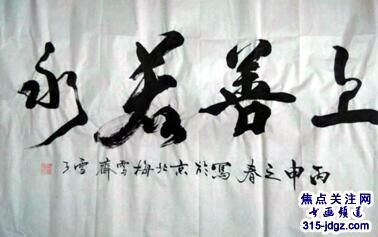 上善若水
丙申之春寫於京北梅雪齋雪
焦点关注网
书画频道
315-jdgz.com